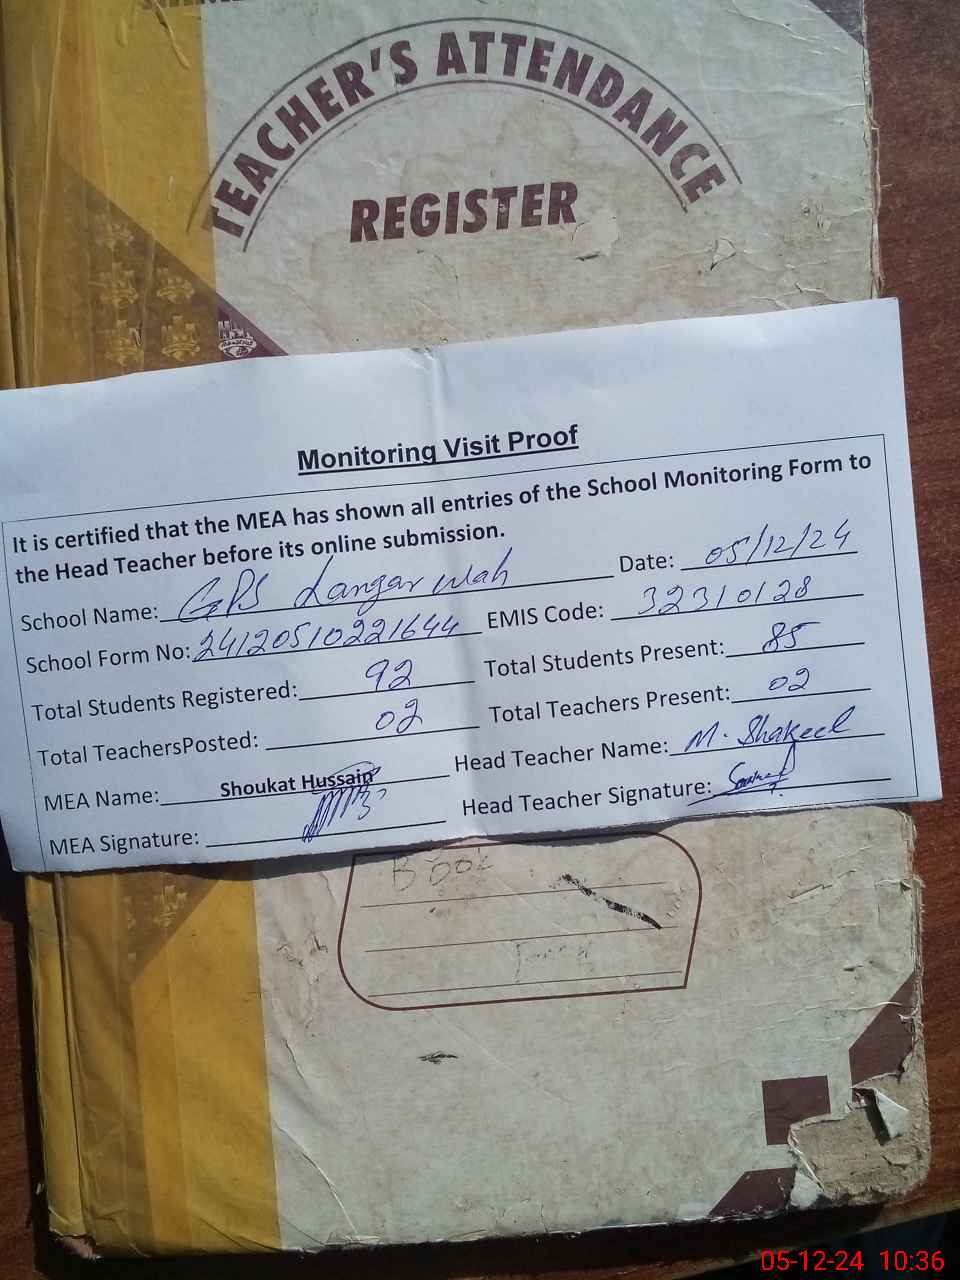 TEACHER'S ATTENDANCE
REGISTER
Monitoring Visit Proof
It is certified that the MEA has shown all entries of the School Monitoring Form to
the Head Teacher before its online submission.
School Name: GPS Langar Wah Date: 05/12/24
School Form No: 24120510221644 EMIS Code: 32310128
Total Students Registered: 92 Total Students Present: 85
Total TeachersPosted: 02 Total Teachers Present: 02
MEA Name: Shoukat Hussain Head Teacher Name: M. Shakeel
MEA Signature: Head Teacher Signature:
Book
05-12-24 10:36